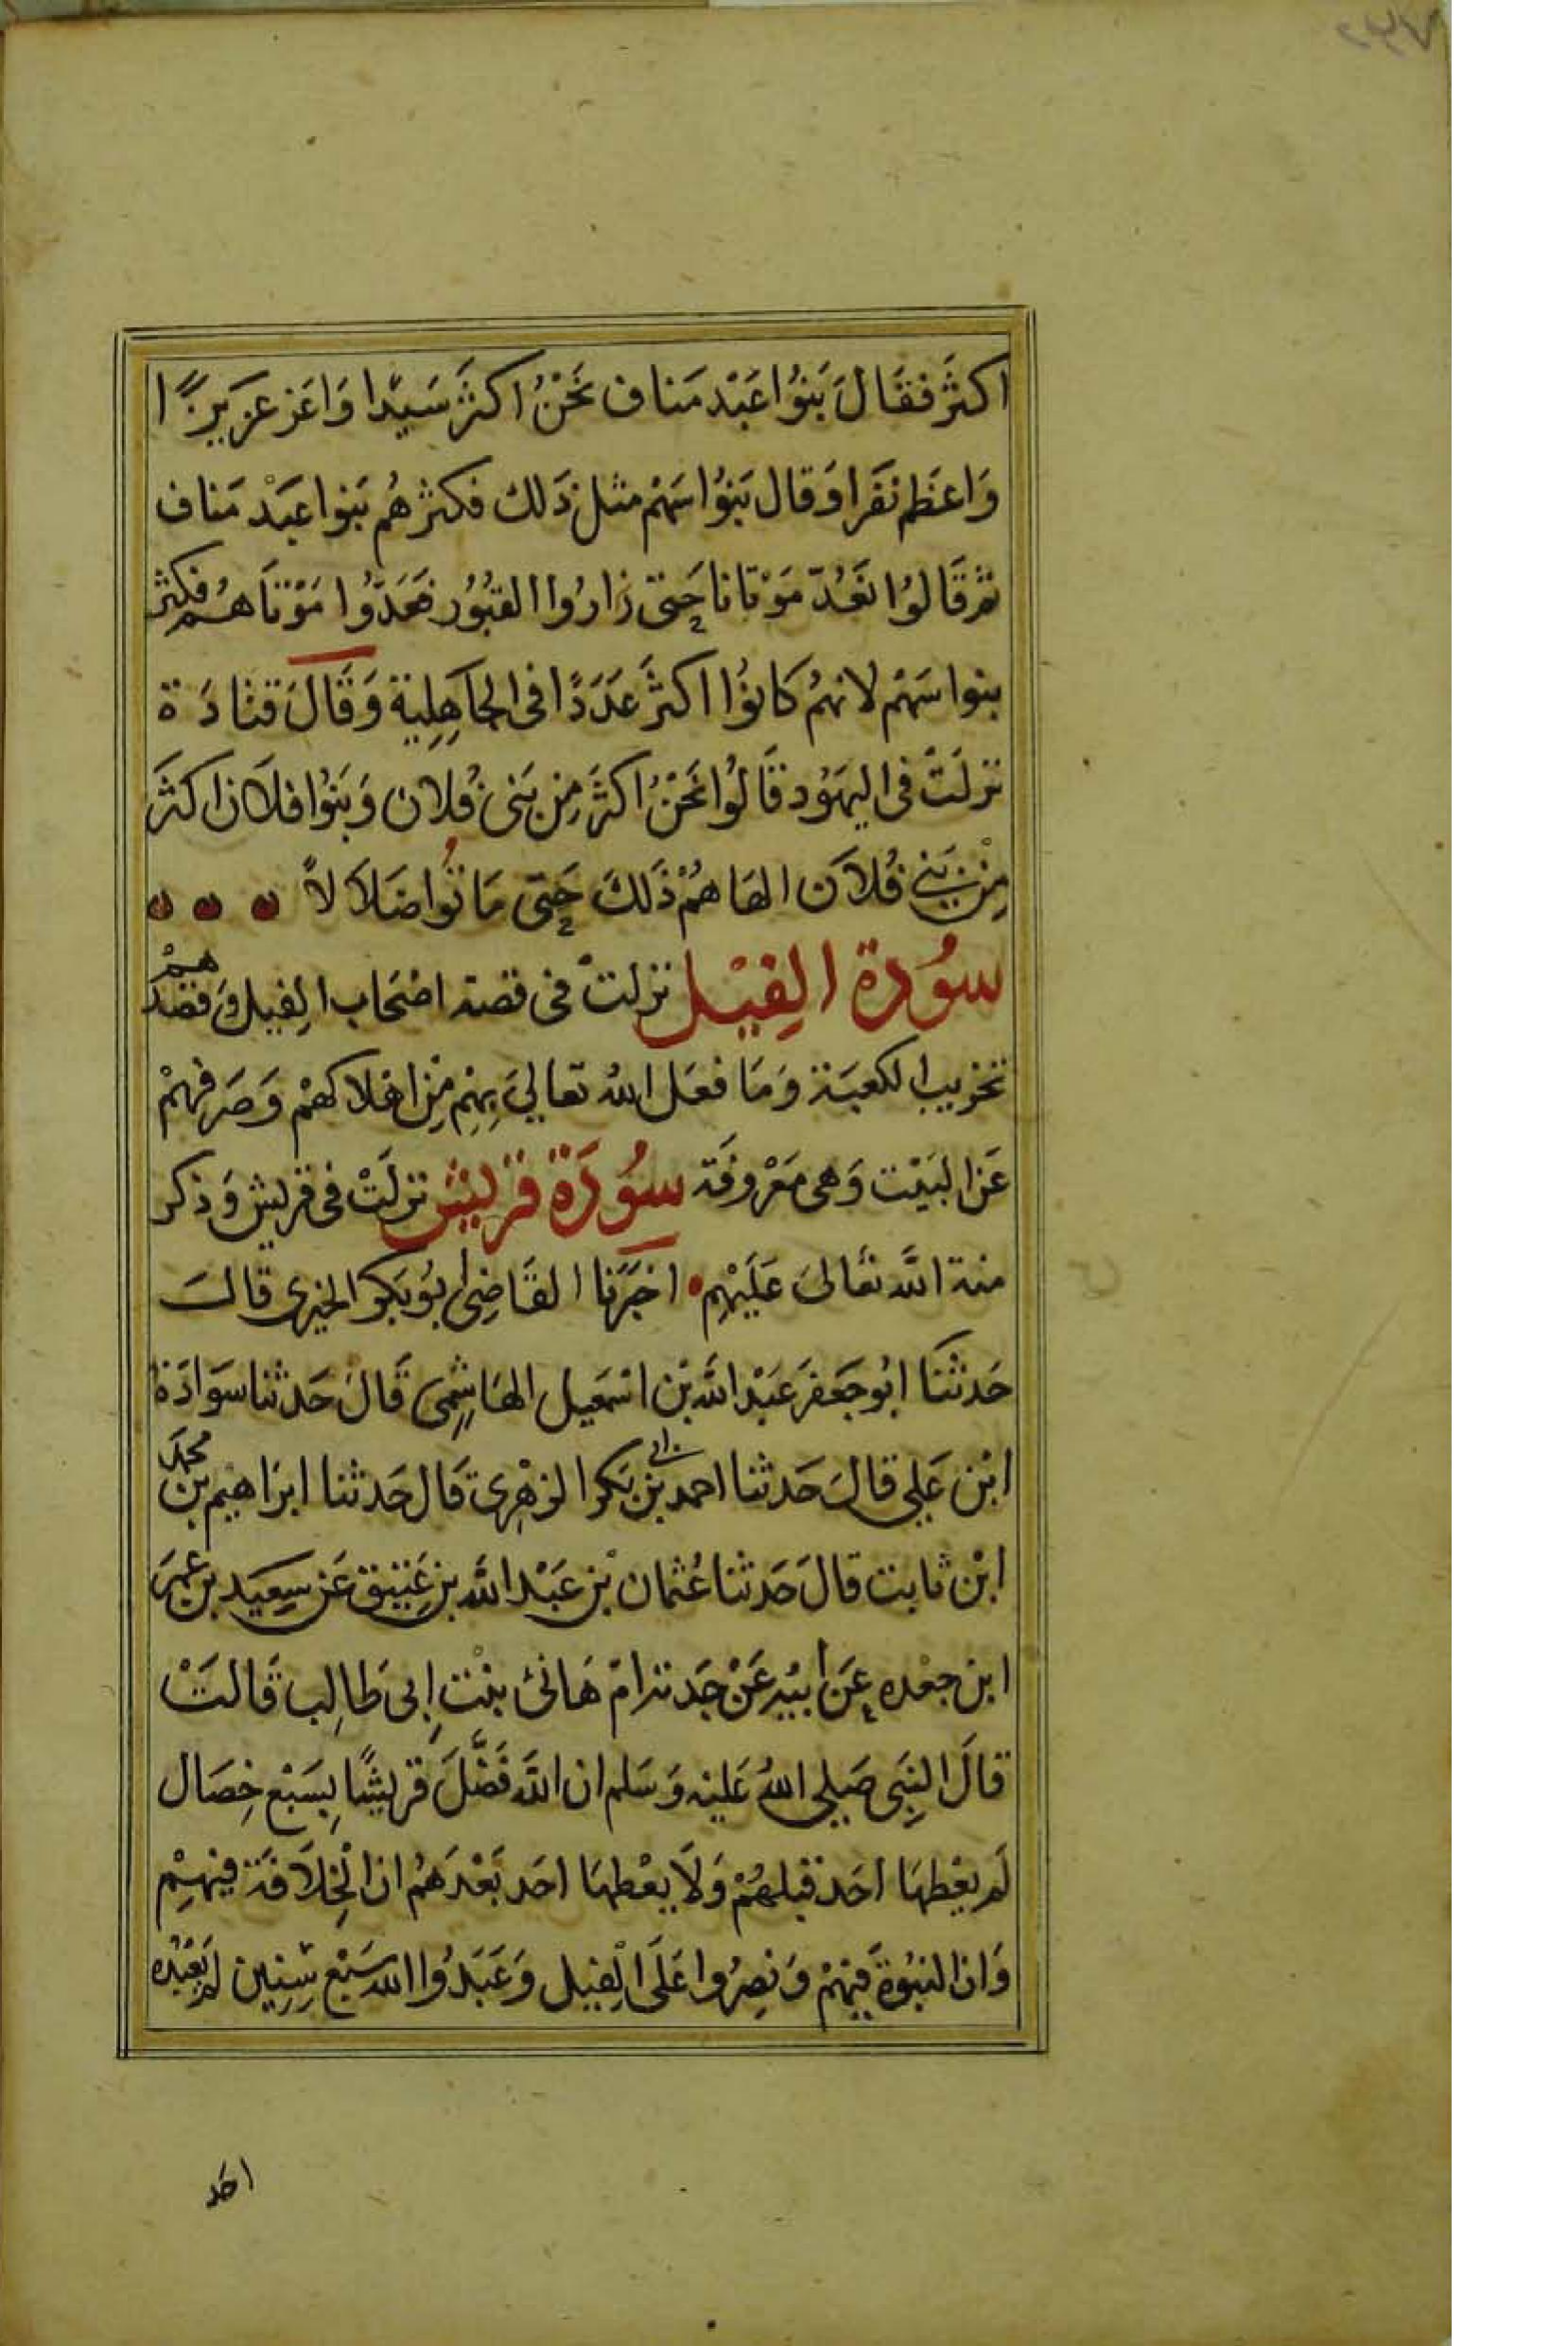 اكثر فقال بنوا عبد مناف نحن اكثر سيدا واعز عزيزا
واعظم نفرا وقال بنوا سهم مثل ذلك فكثرهم بنوا عبد مناف
ثم قالوا نعد موتانا حتى زاروا القبور فعدوا موتاهم فكثر
بنوا سهم لانهم كانوا اكثر عددا فى الجاهلية وقال قتادة
نزلت فى اليهود قالوا نحن اكثر من بنى فلان وبنوا فلان اكثر
من بني فلان الهاهم ذلك حتى ماتوا ضلالا
سورة الفيل نزلت فى قصة اصحاب الفيل وقصدهم
تخريب الكعبة وما فعل الله تعالى بهم من اهلاكهم وصرفهم
عن البيت وهى معروفة سورة قريش نزلت فى قريش وذكر
منة الله تعالى عليهم اخبرنا القاضى ابو بكر الحيرى قال
حدثنا ابو جعفر عبد الله بن اسمعيل الهاشمى قال حدثنا سوادة
ابن علي قال حدثنا احمد بن ابى بكر الزهرى قال حدثنا ابراهيم بن محمد
ابن ثابت قال حدثنا عثمان بن عبد الله بن عتيق عن سعيد بن عمر
ابن جعده عن ابيه عن جدته ام هانئ بنت ابى طالب قالت
قال النبى صلى الله عليه وسلم ان الله فضل قريشا بسبع خصال
لم يعطها احد قبلهم ولا يعطها احد بعدهم ان الخلافة فيهم
وان النبوة فيهم ونصروا على الفيل وعبدوا الله سبع سنين لم يعبده
احد